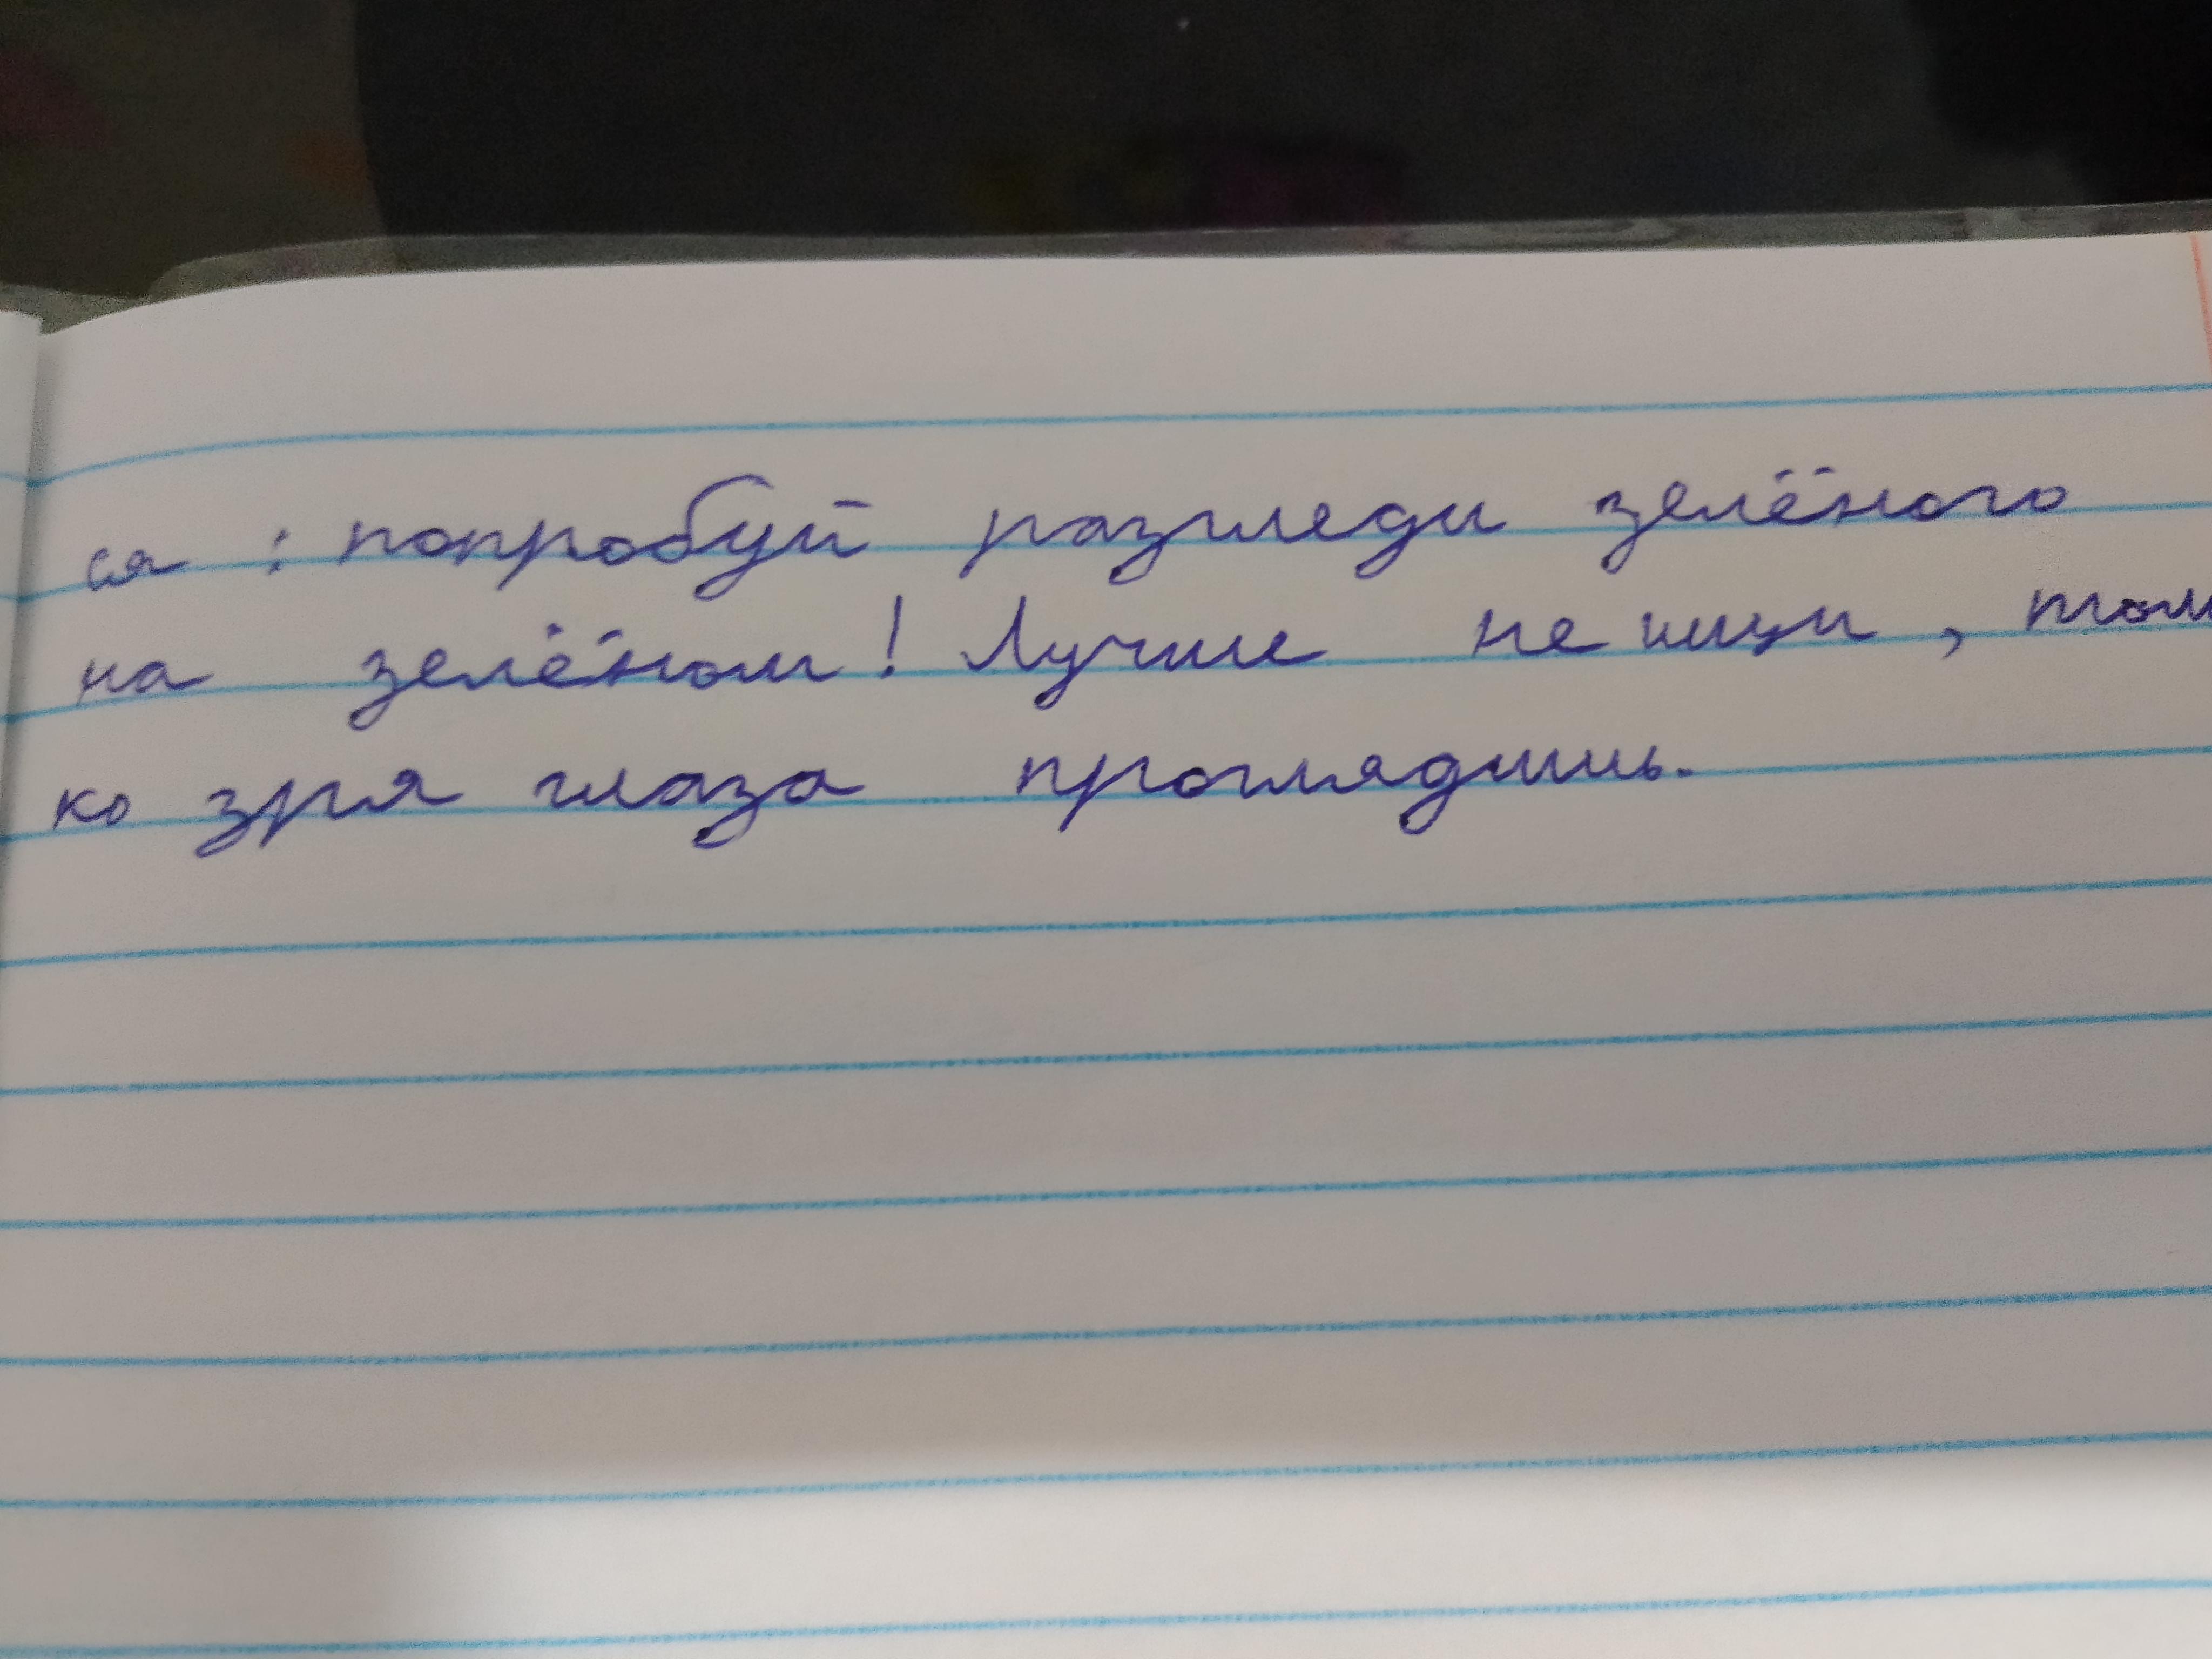 ся : попробуй разгледи зелёного
на зелёном! Лучше не ищи, толь
ко зря глаза проглядишь.